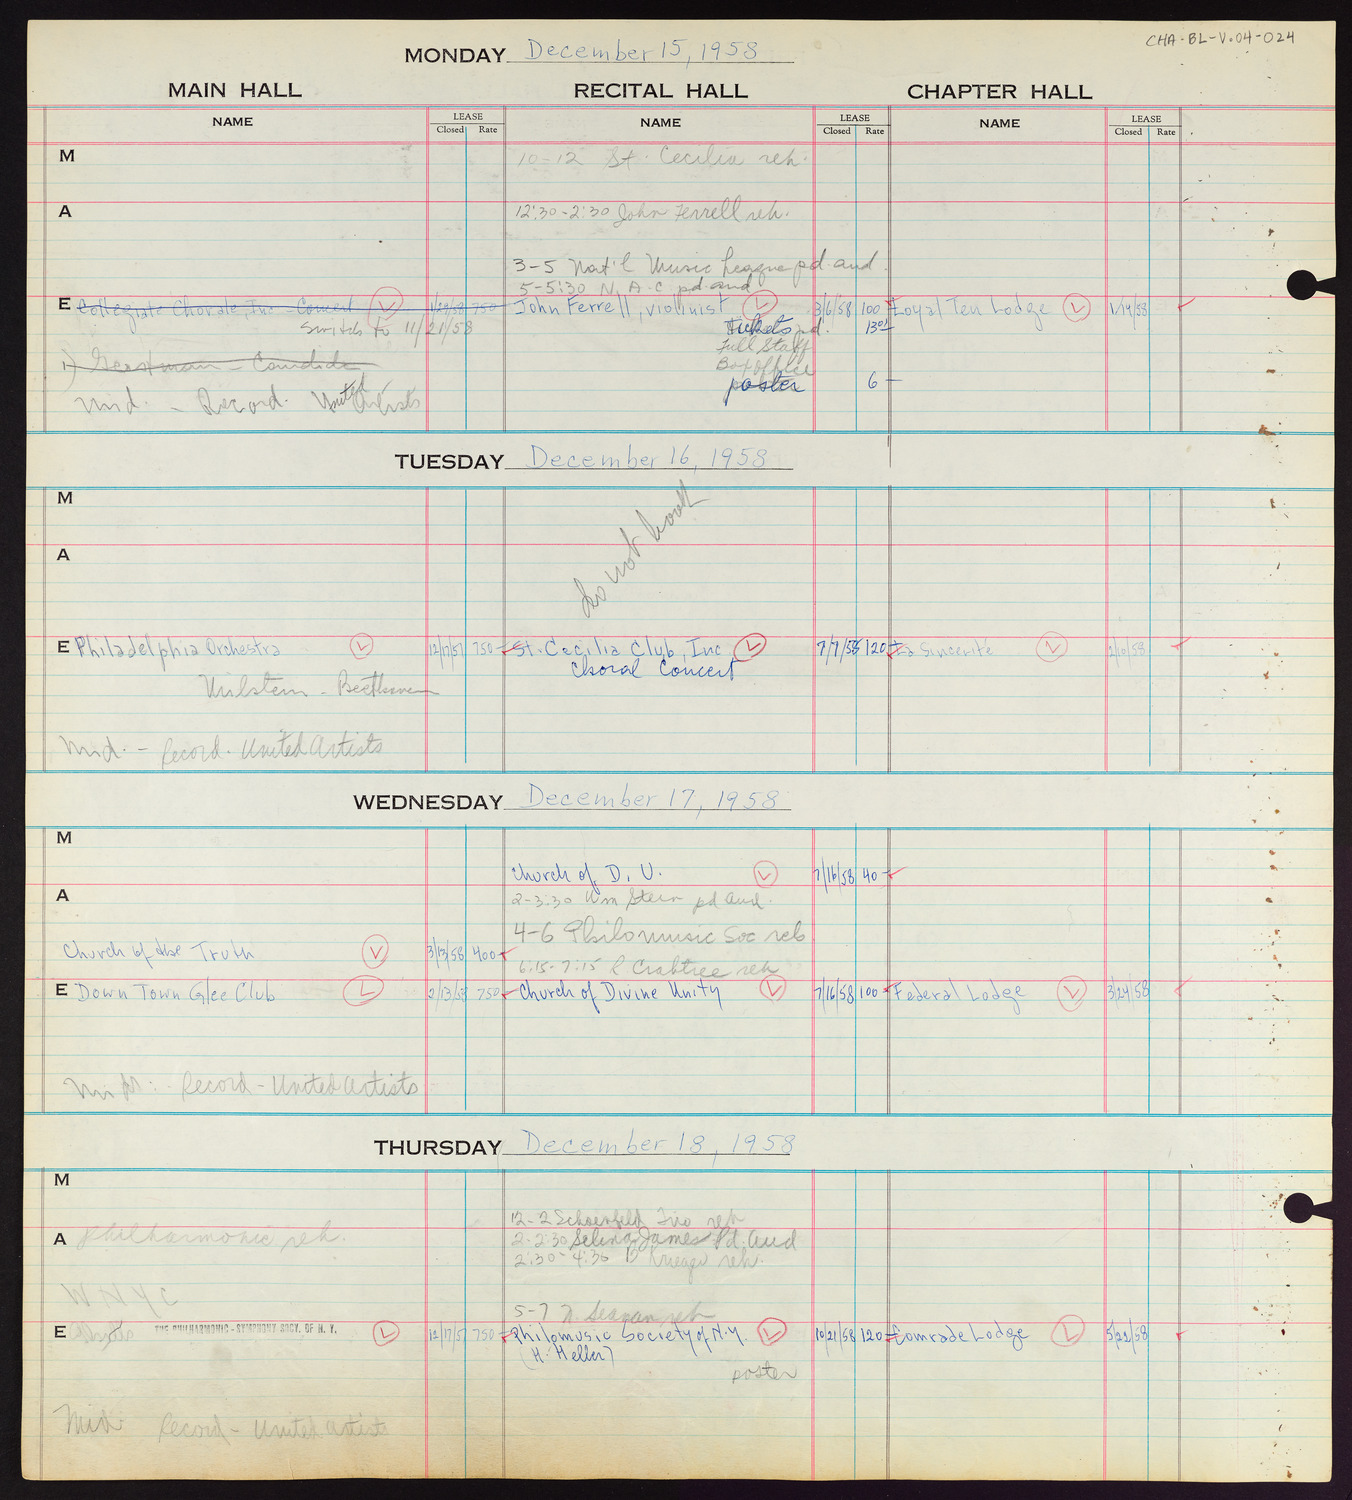 CHA-BL-V.04-024
MONDAY December 15, 1958
MAIN HALL RECITAL HALL CHAPTER HALL
NAME LEASE Closed Rate NAME LEASE Closed Rate NAME LEASE Closed Rate
M 10-12 St. Cecilia reh.
A 12:30-2:30 John Ferrell reh.
3-5 Nat'l Music League pd. aud.
5-5:30 N. A. C pd. aud
E Collegiate Chorale, Inc - Concert L 1/29/58 750 John Ferrell, violinist L 3/6/58 100 Loyal Ten Lodge L 1/14/58
Switch to 11/21/58 tickets pd.
Full Staff
Box office
- Candide
poster 6 -
Mid. - Record. United Artists
TUESDAY December 16, 1958
M
Do not book
A
E Philadelphia Orchestra L 12/17/57 750 St. Cecilia Club, Inc L 7/7/58 120 La Sincerité L 2/10/58
Choral Concert
Milstein - Beethoven
Mid. - Record. United Artists
WEDNESDAY December 17, 1958
M
Church of D. U. L 7/16/58 40
A 2-3:30 Wm Stein pd aud.
4-6 Philomusic Soc reh
Church of the Truth L 3/13/58 400
6:15-7:15 R Crabtree reh
E Down Town Glee Club L 2/13/58 750 Church of Divine Unity L 7/16/58 100 Federal Lodge L 3/24/58
Mid. Record - United Artists
THURSDAY December 18, 1958
M
12-2 Schoenfeld Trio reh
A Philharmonic reh. 2-2:30 Selina James Pd. aud
2:30-4:30 B Krueger reh.
WNYC
5-7 N. Seaman reh
E THE PHILHARMONIC-SYMPHONY SOCY. OF N. Y. L 12/17/57 750 Philomusic Society of N.Y. L 10/21/58 120 Comrade Lodge L 5/22/58
(H. Heller)
poster
Mid Record - United Artists